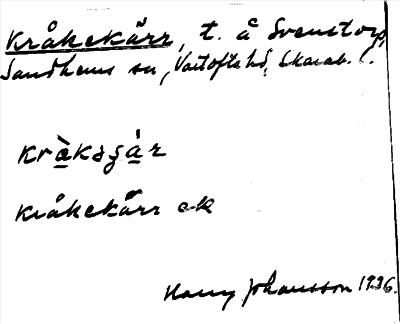 Kråkekärr, t. å Svenstorp
Sandhems sn, Vartofta hd, Skarab. l.
kràkəʒár
kråkekärr ek
Harry Johansson 1936.